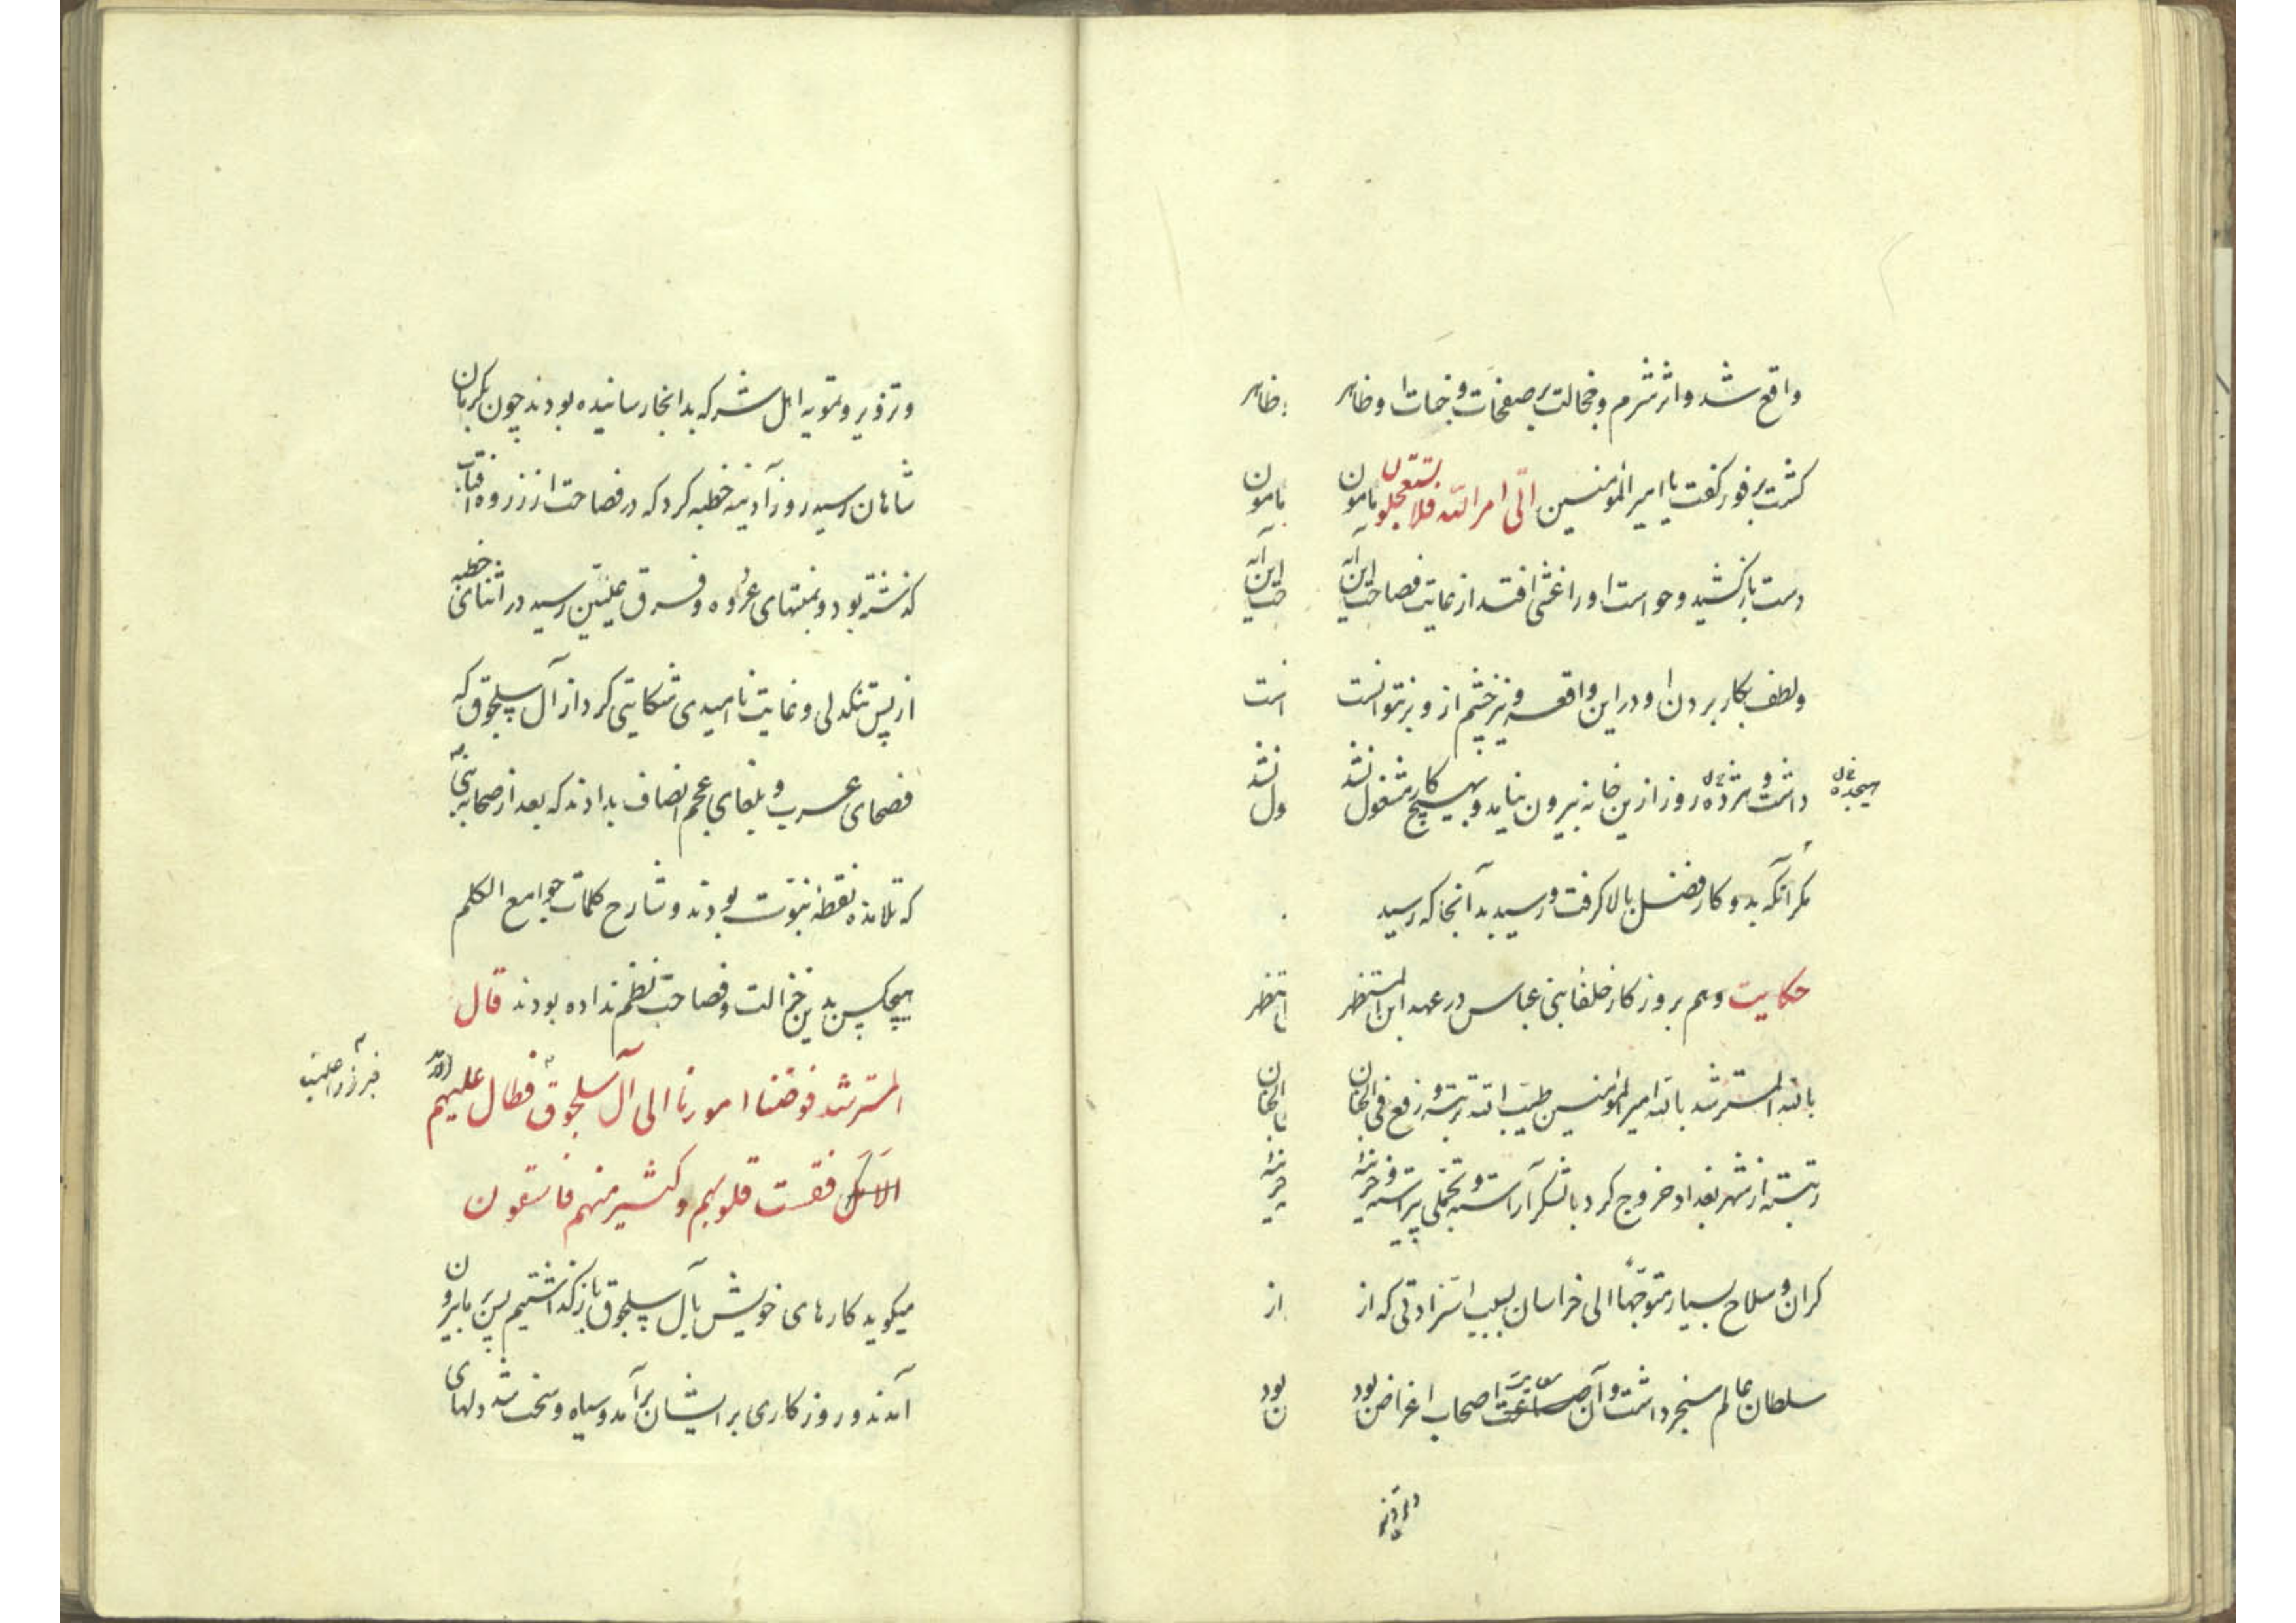 واقع شد و اثر شرم و خجالت بر صفحات وجنات او ظاهر
گشت بر فور گفت یا امیر المومنین اتی امر الله فلا تستعجلوه مامون
دست باز کشید و خواست او را غشی افتد از غایت فصاحت این آیه
و لطف بکار بردن او در این واقعه و نیز چشم از و بر نتوانست
داشت و هژده روز ازین خانه بیرون نیامد و بهیچ کار مشغول نشد
هیجده
مگر آنکه بدو کار فضل بالا گرفت و رسید بدآنجا که رسید
حکایت و هم بروزگار خلفا بنی عباس در عهد ابن المستظهر
بالله المسترشد بالله امیر المومنین طیب الله تربته و رفع فی الجنان
رتبته از شهر بغداد خروج کرد با لشکر آراسته و تجملی پیراسته و خزینه
گران و سلاح بسیار متوجها الی خراسان بسبب استزادتی که از
سلطان عالم سنجر داشت و آن صناعت اصحاب اغراض بود
و تزویر و تمویه اهل شر که بدانجا رسانیده بودند چون بکرمان
شاهان رسید روز آدینه خطبه کرد که در فصاحت از ذروه آفتاب
گذشته بود و بمنتهای عروه و فرق علیین رسید در اثنای خطبه
از پس تنگدلی و غایت ناامیدی شکایتی کرد از آل سلجوق که
فصحای عرب و بلغای عجم انصاف بدادند که بعد از صحابه نبی
که تلامذه نقطه نبوت بودند و شارح کلمات جوامع الکلم
هیچکس بدین جزالت و فصاحت نظم نداده بودند قال
المسترشد فوضنا امورنا الی آل سلجوق فطال علیهم الامد
فقست قلوبهم و کثیر منهم فاسقون
میگوید کارهای خویش بآل سلجوق باز گذاشتیم پس بر ما بیرون
آمدند و روزگاری بر ایشان برآمد و سیاه و سخت شد دلهای